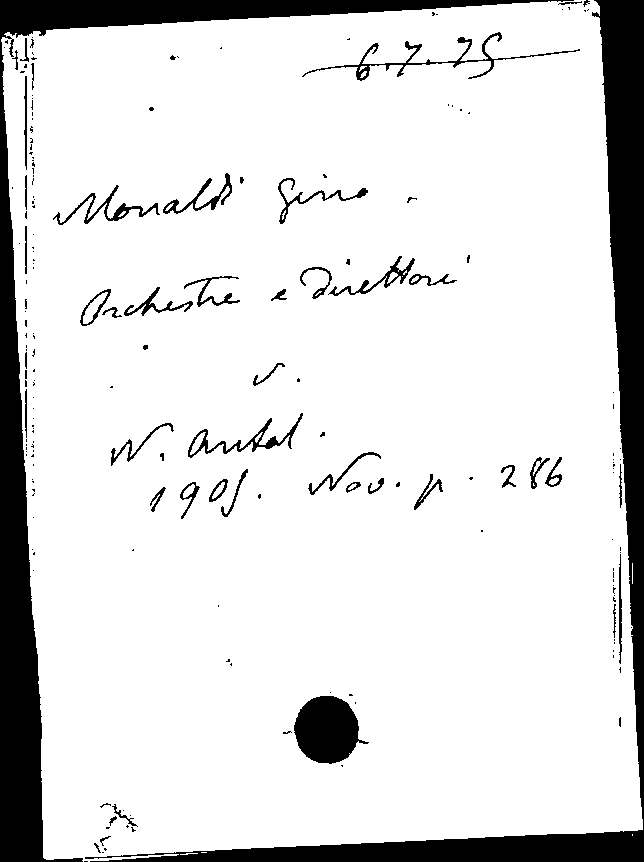 6.7.75
Monaldi Gino.
Orchestre e Direttori
v.
N. Antol.
1905. Nov. p. 286